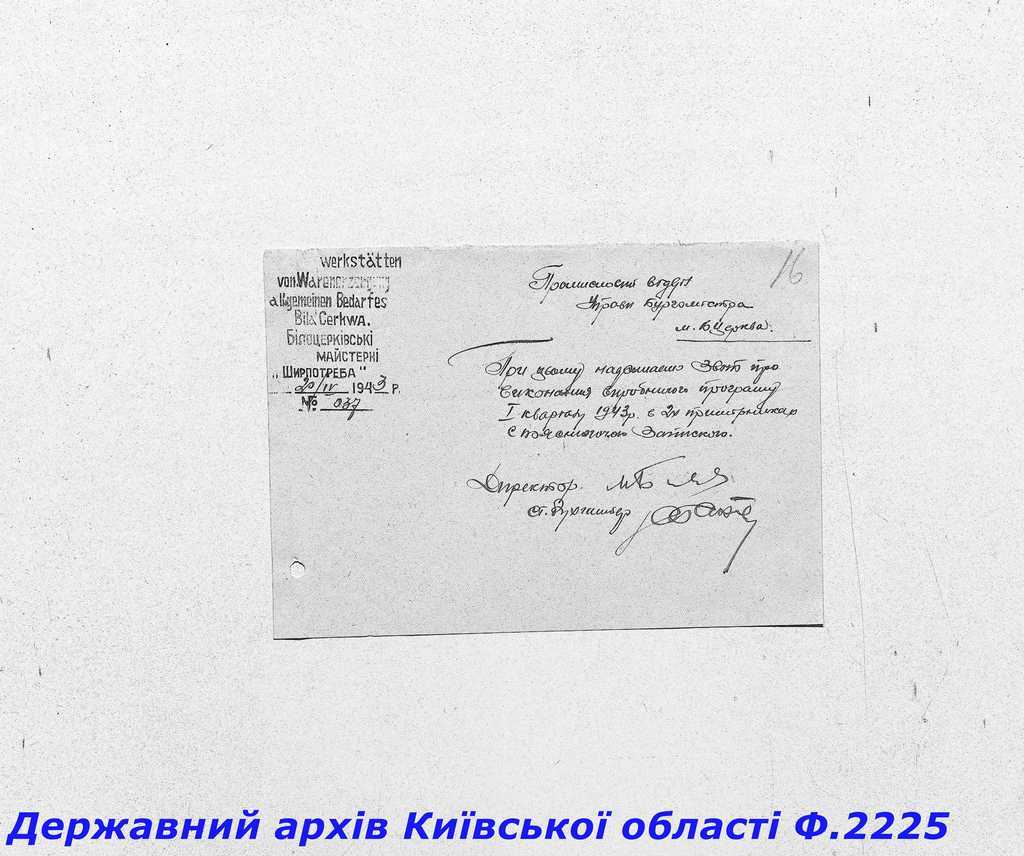 16
werkstätten
von Warenerzeugung
allgemeinen Bedarfes
Bila Cerkwa.
Білоцерківські
майстерні
„Ширпотреба"
20/IV 1943 р.
№ 037
Промисловий відділ
Управи Бургомістра
м. БЦерква.
При цьому надсилаємо Звіт про
виконання виробничого програму
I кварталу 1943р. в 2х примірниках
с пояснюючою Запискою.
Директор.
ст. Бухгалтер
Державний архів Київської області Ф.2225